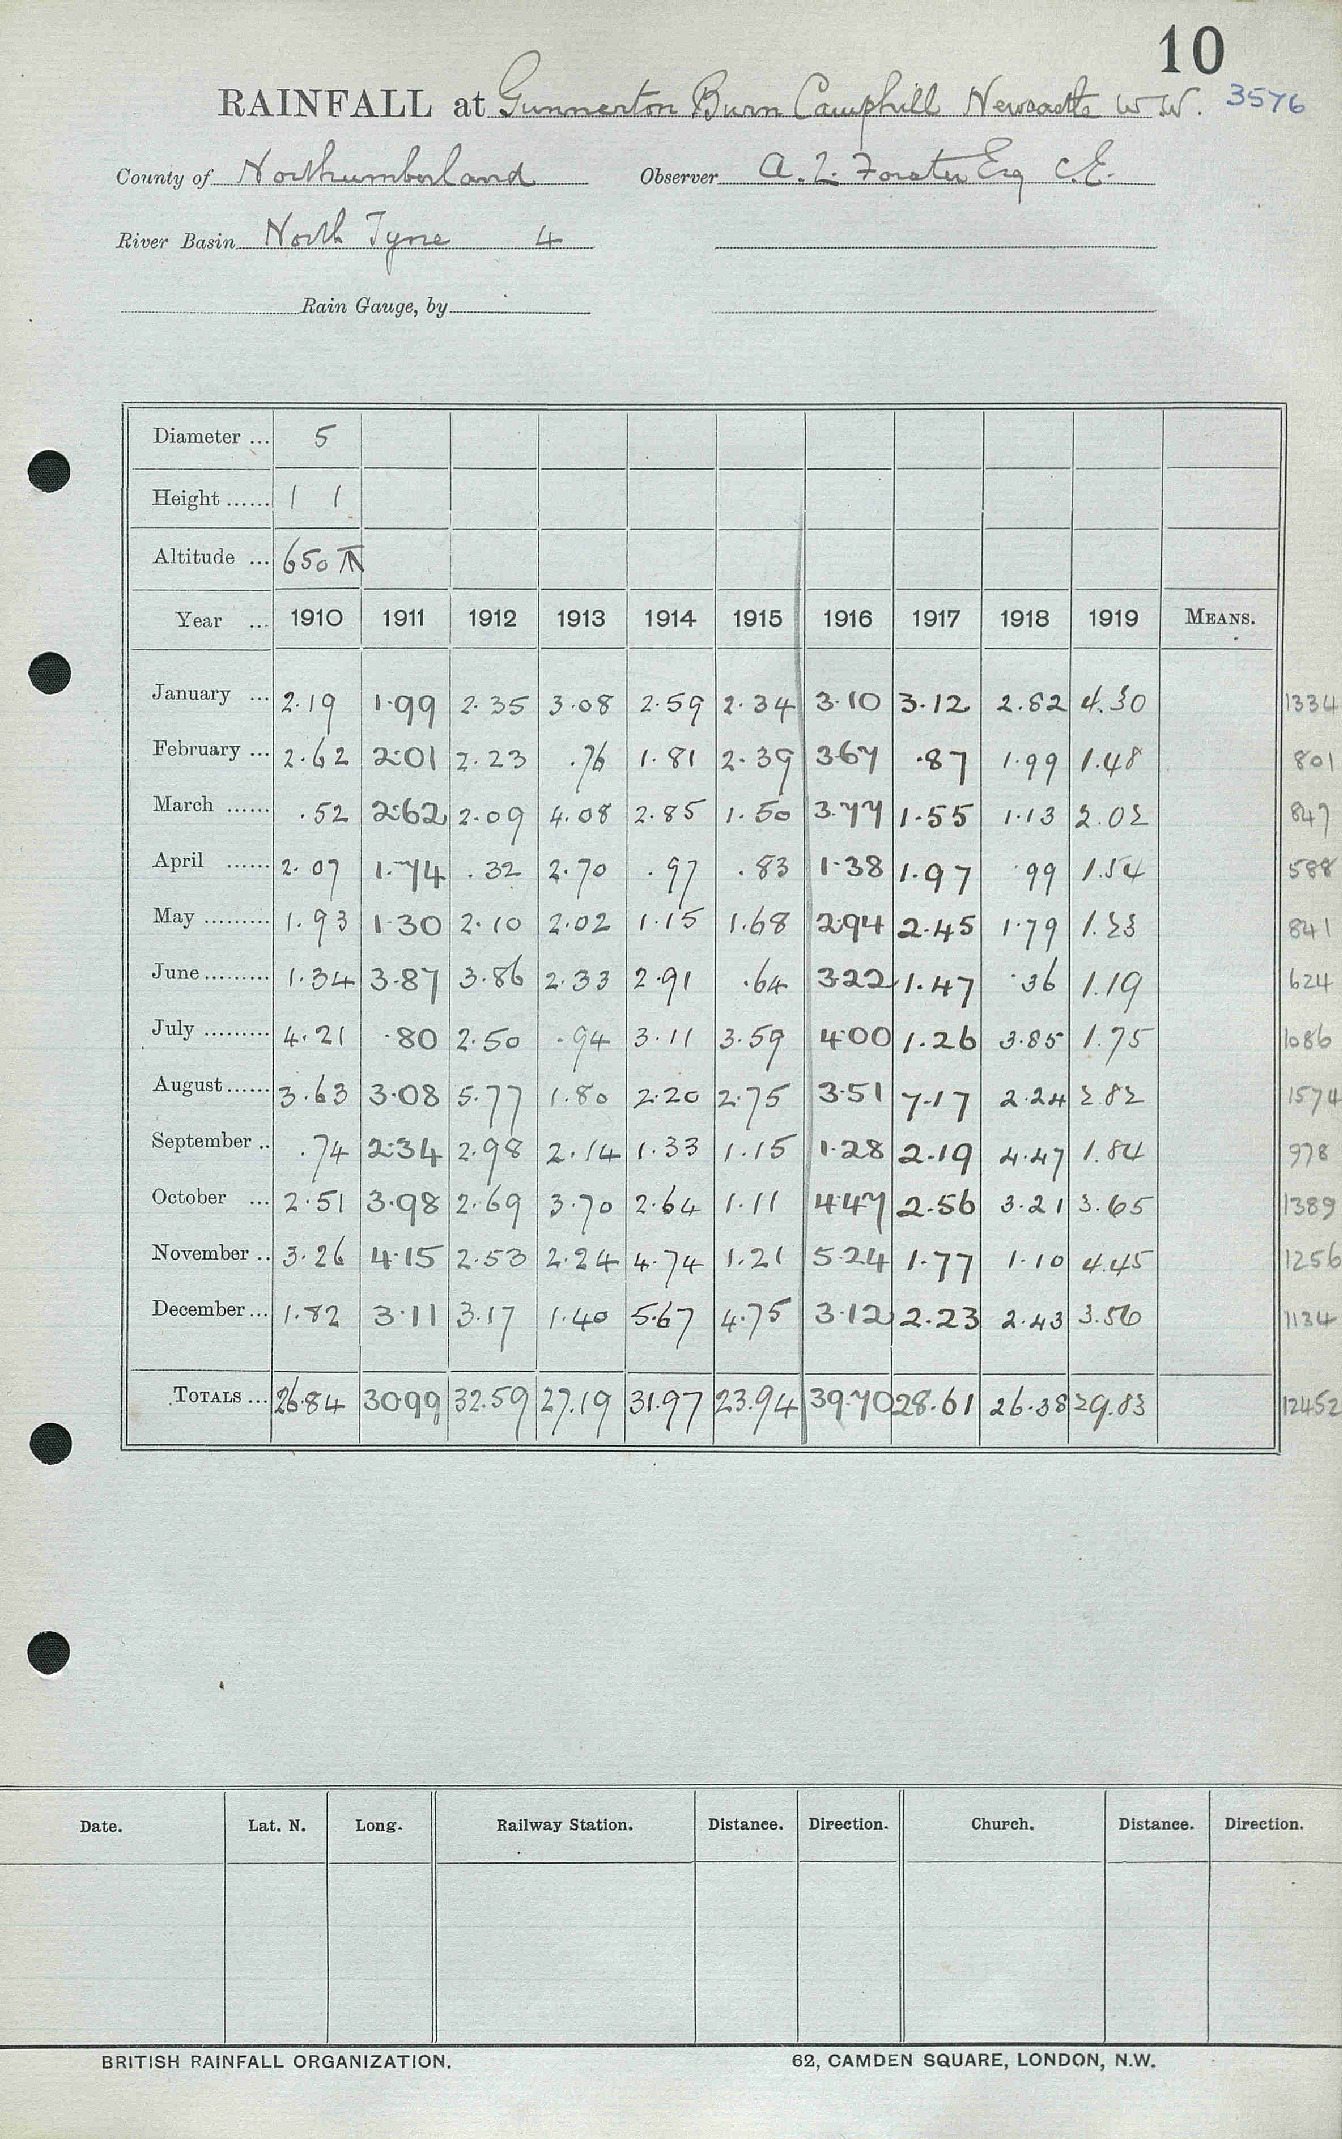 10
RAINFALL at Gunnerton Burn Camphill Newcastle W.W. 3576
County of Northumberland Observer A. L. Forster Esq C.E.
River Basin North Tyne 4
Rain Gauge, by
Diameter ... 5
Height ...... 1 1
Altitude ... 650
Year ... 1910 1911 1912 1913 1914 1915 1916 1917 1918 1919 MEANS.
January ... 2.19 1.99 2.35 3.08 2.59 2.34 3.10 3.12 2.82 4.30 1334
February ... 2.62 2.01 2.23 .76 1.81 2.39 3.67 .87 1.99 1.48 801
March ...... .52 2.62 2.09 4.08 2.85 1.50 3.77 1.55 1.13 2.02 847
April ...... 2.07 1.74 .32 2.70 .97 .83 1.38 1.97 .99 1.54 588
May ......... 1.93 1.30 2.10 2.02 1.15 1.68 2.94 2.45 1.79 1.23 841
June ......... 1.34 3.87 3.86 2.33 2.91 .64 3.22 1.47 .36 1.19 624
July ......... 4.21 .80 2.50 .94 3.11 3.59 4.00 1.26 3.85 1.75 1086
August ...... 3.63 3.08 5.77 1.80 2.20 2.75 3.51 7.17 2.24 2.82 1574
September .. .74 2.34 2.98 2.14 1.33 1.15 1.28 2.19 4.47 1.84 978
October ... 2.51 3.98 2.69 3.70 2.64 1.11 4.47 2.56 3.21 3.65 1389
November .. 3.26 4.15 2.53 2.24 4.74 1.21 5.24 1.77 1.10 4.45 1256
December ... 1.82 3.11 3.17 1.40 5.67 4.75 3.12 2.23 2.43 3.56 1134
TOTALS ... 26.84 30.99 32.59 27.19 31.97 23.94 39.70 28.61 26.38 29.83 12452
Date. Lat. N. Long. Railway Station. Distance. Direction. Church. Distance. Direction.
BRITISH RAINFALL ORGANIZATION. 62, CAMDEN SQUARE, LONDON, N.W.